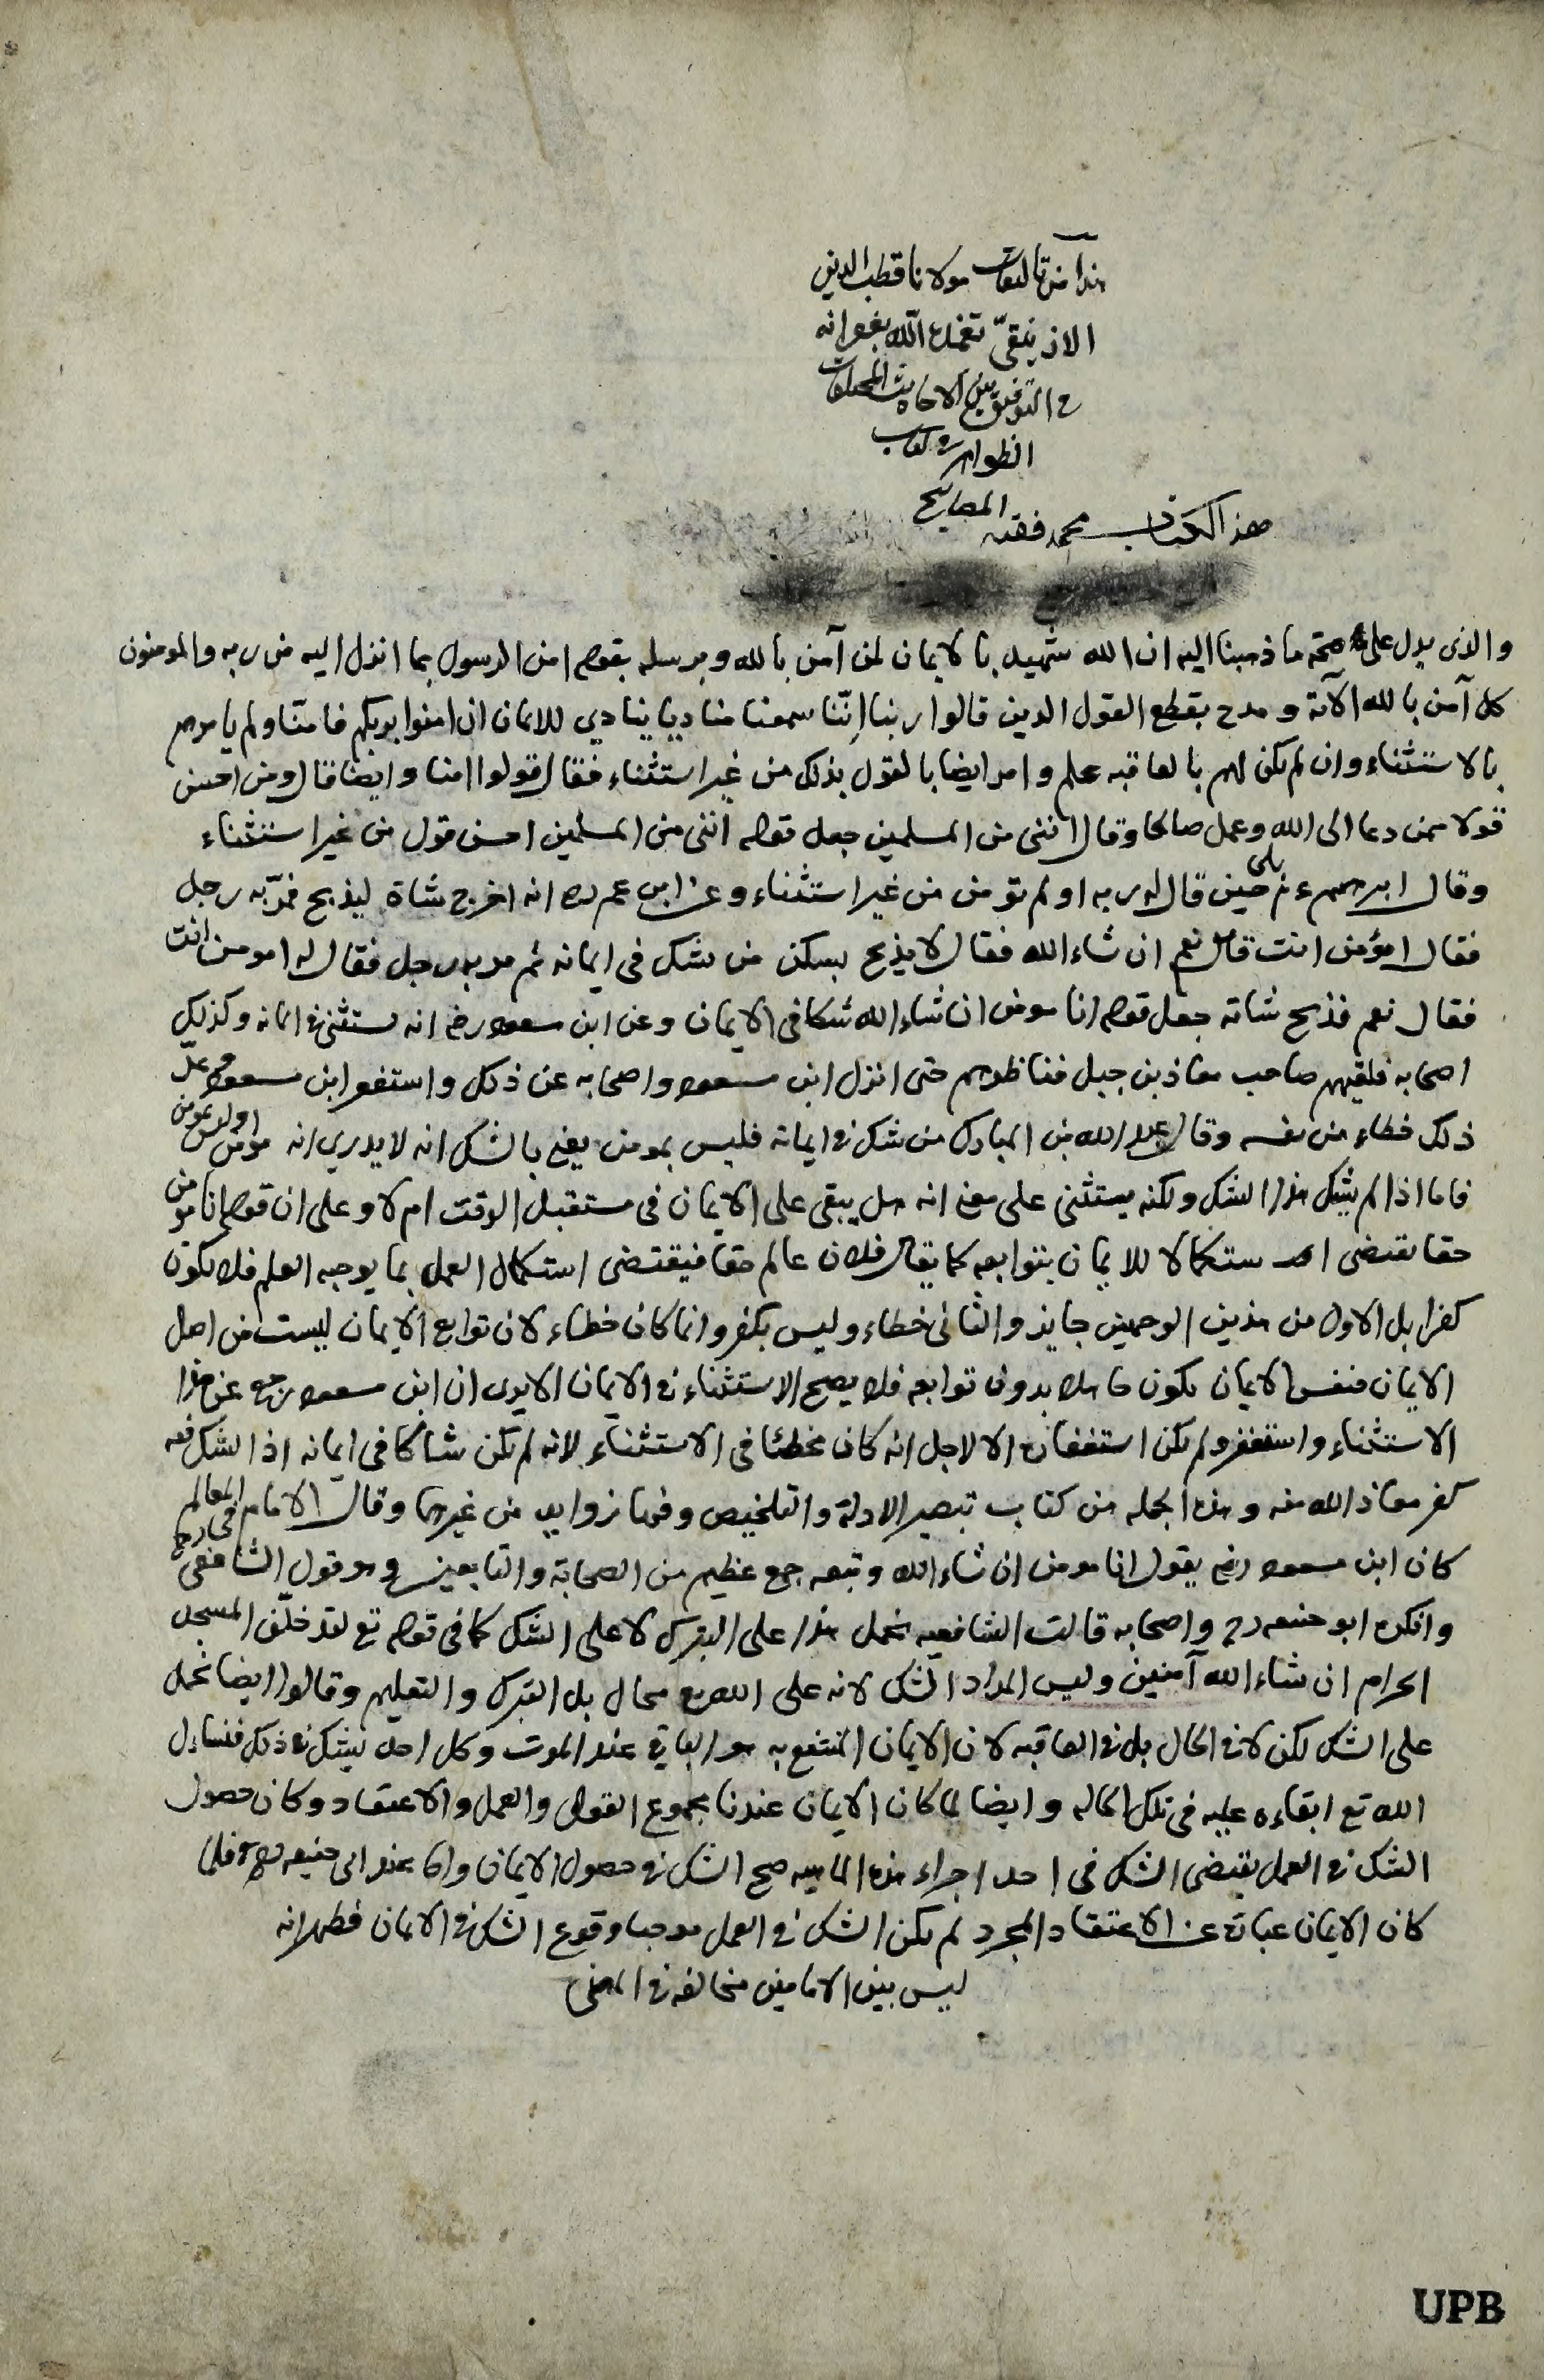 هذا من تاليفات مولانا قطب الدين
الازنيقىّ تغمده الله بغفرانه
فى التوفيق بين الاحاديث المختلفات
الظواهر فى كتاب
المصابيح
هذا الكتاب محمد فقيه
والذى يدل على صحة ما ذهبنا اليه ان الله شهيد بالايمان لمن آمن بالله وبرسله بقوله امن الرسول بما انزل اليه من ربه والمومنون
كل آمن بالله الآية ومدح بقطع القول الذين قالوا ربنا اِنّنا سمعنا مناديا ينادي للايمان ان امنوا بربكم فامنّا ولم يامرهم
بالاستثناء وان لم يكن لهم بالعاقبه علم وامر ايضا بالقول بذلك من غير استثناء فقال قولوا امنا وايضا قال ومن احسن
قولا ممن دعا الى الله وعمل صالحا وقال اننى من المسلمين جعل قوله اننى من المسلمين احسن قول من غير استثناء
وقال ابرهيم ءم بلى حين قال له ربه اولم تؤمن من غير استثناء وعن ابن عمر رضه انه اخرج شاة ليذبح فمرّ به رجل
فقال امؤمن انت قال نعم ان شاء الله فقال لا يذبح بسكن من شك فى ايمانه ثم مر به رجل فقال له امومن انت
فقال نعم فذبح شاته جعل قوله انا مومن ان شاء الله شكا فى الايمان وعن ابن مسعود رضه انه يستثنى فى ايمانه وكذلك
اصحابه فلقيهم صاحب معاذ بن جبل فناظرهم حتى انزل ابن مسعود واصحابه عن ذلك واستغفر ابن مسعود وعدّ
ذلك خطاء من نفسه وقال عبد الله بن المبارك من شك فى ايمانه فليس بمومن يعنى بالشك انه لا يدري انه مومن او ليس بمومن
فاما اذا لم يشك هذا الشك ولكنه يستثنى على معنى انه هل يبقى على الايمان فى مستقبل الوقت ام لا وعلى ان قوله انا مومن
حقا يقتضى استكمالا للايمان بتوابعه كما يقال فلان عالم حقا فيقتضى استكمال العمل بما يوجبه العلم فلا يكون
كفرا بل الاول من هذين الوجهين جايز والثانى خطاء وليس بكفر وانما كان خطاء لان توابع الايمان ليست من اصل
الايمان فنفس الايمان يكون كاملا بدون توابعه فلا يصح الاستثناء فى الايمان الا يرى ان ابن مسعود رجع عن هذا
الاستثناء واستغفر ولم يكن استغفاره الا لاجل انه كان مخطئا فى الاستثناء لانه لم يكن شاكا فى ايمانه اذ الشك فيه
كفر معاذ الله منه وهذه الجمله من كتاب تبصير الادلة والتلخيص وفيها زوايد من غيرها وقال الامام فى المعالم
كان ابن مسعود رضه يقول انا مومن ان شاء الله وتبعه جمع عظيم من الصحابة والتابعين وهو قول الشافعى رح
وانكره ابو حنيفه رح واصحابه قالت الشافعيه نحمل هذا على التبرك لا على الشك كما فى قوله تع لتدخلنّ المسجد
الحرام ان شاء الله آمنين وليس المراد الشك لانه على الله تع محال بل التبرك والتعليم وقالوا ايضا نحمله
على الشك لكن لا فى الحال بل فى العاقبه لان الايمان المنتفع به هو الباقى عند الموت وكل احد يشك فى ذلك فنسأل
الله تع ابقاءه عليه فى تلك الحاله وايضا لما كان الايمان عندنا مجموع القول والعمل والاعتقاد وكان حصول
الشك فى العمل يقتضى الشك فى احد اجزاء هذه الماهيه صح الشك فى حصول الايمان واما عند ابى حنيفه رح فلما
كان الايمان عبارة عن الاعتقاد المجرد لم يكن الشك فى العمل موجبا وقوع الشك فى الايمان فظهر انه
ليس بين الامامين مخالفه فى المعنى
UPB